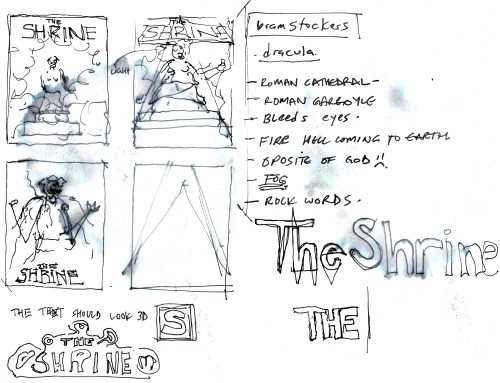 THE
SHRINE
THE
SHRINE
LIGHT
bram stockers
dracula.
- ROMAN CATHEDRAL -
- ROMAN GARGOYLE
- Bleeds eyes.
- FIRE HELL COMING TO EARTH
- OPOSITE OF GOD!!
- FOG
- ROCK WORDS.
THE
SHRINE
The Shrine
THE TEXT SHOULD LOOK 3D
S
THE
THE
SHRINE